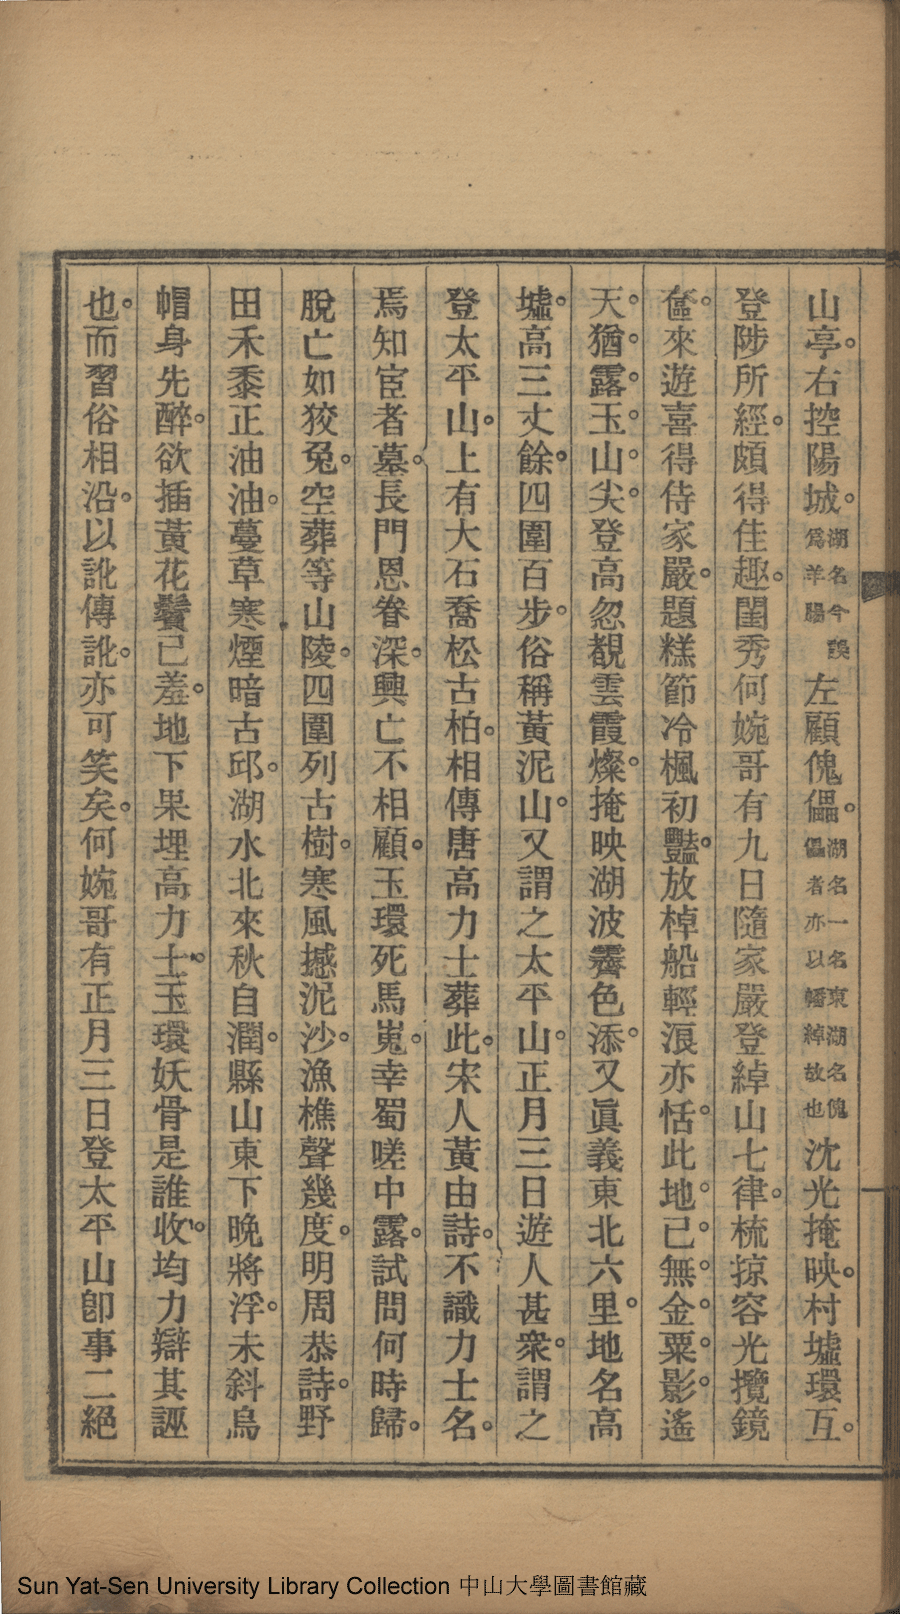 山亭。右控陽城。湖名今誤為羊腸左顧傀儡。湖名一名東湖名傀儡者亦以幡綽故也沈光掩映。村墟環互。
登陟所經。頗得佳趣。閨秀何婉哥有九日隨家嚴登綽山七律。梳掠容光攬鏡
奩。來遊喜得侍家嚴。題糕節冷楓初豔。放棹船輕浪亦恬。此地。已。無。金。粟。影。遙
天。猶。露。玉。山。尖。登高忽覩雲霞燦。掩映湖波霽色添。又眞義東北六里。地名高
墟。高三丈餘。四圍百步。俗稱黃泥山。又謂之太平山。正月三日遊人甚衆。謂之
登太平山。上有大石喬松古柏。相傳唐高力士葬此。宋人黃由詩。不識力士名。
焉知宦者墓。長門恩眷深。興亡不相顧。玉環死馬嵬。幸蜀嗟中露。試問何時歸。
脫亡如狡兔。空葬等山陵。四圍列古樹。寒風撼泥沙。漁樵聲幾度。明周恭詩。野
田禾黍正油油。蔓草寒煙暗古邱。湖水北來秋自潤。縣山東下晩將浮。未斜烏
帽身先醉。欲插黃花鬢已羞。地下果埋高力士。玉環妖骨是誰收。均力辯其誣
也。而習俗相沿。以訛傳訛。亦可笑矣。何婉哥有正月三日登太平山卽事二絕
Sun Yat-Sen University Library Collection 中山大學圖書館藏